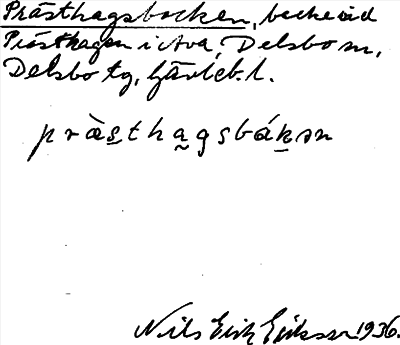 Prästhagsbacken, backe vid
Prästhagen i Ava, Delsbo sn,
Delsbo tg, Gävleb. l.
pràsthagsbákən
Nils Erik Eriksson 1936.